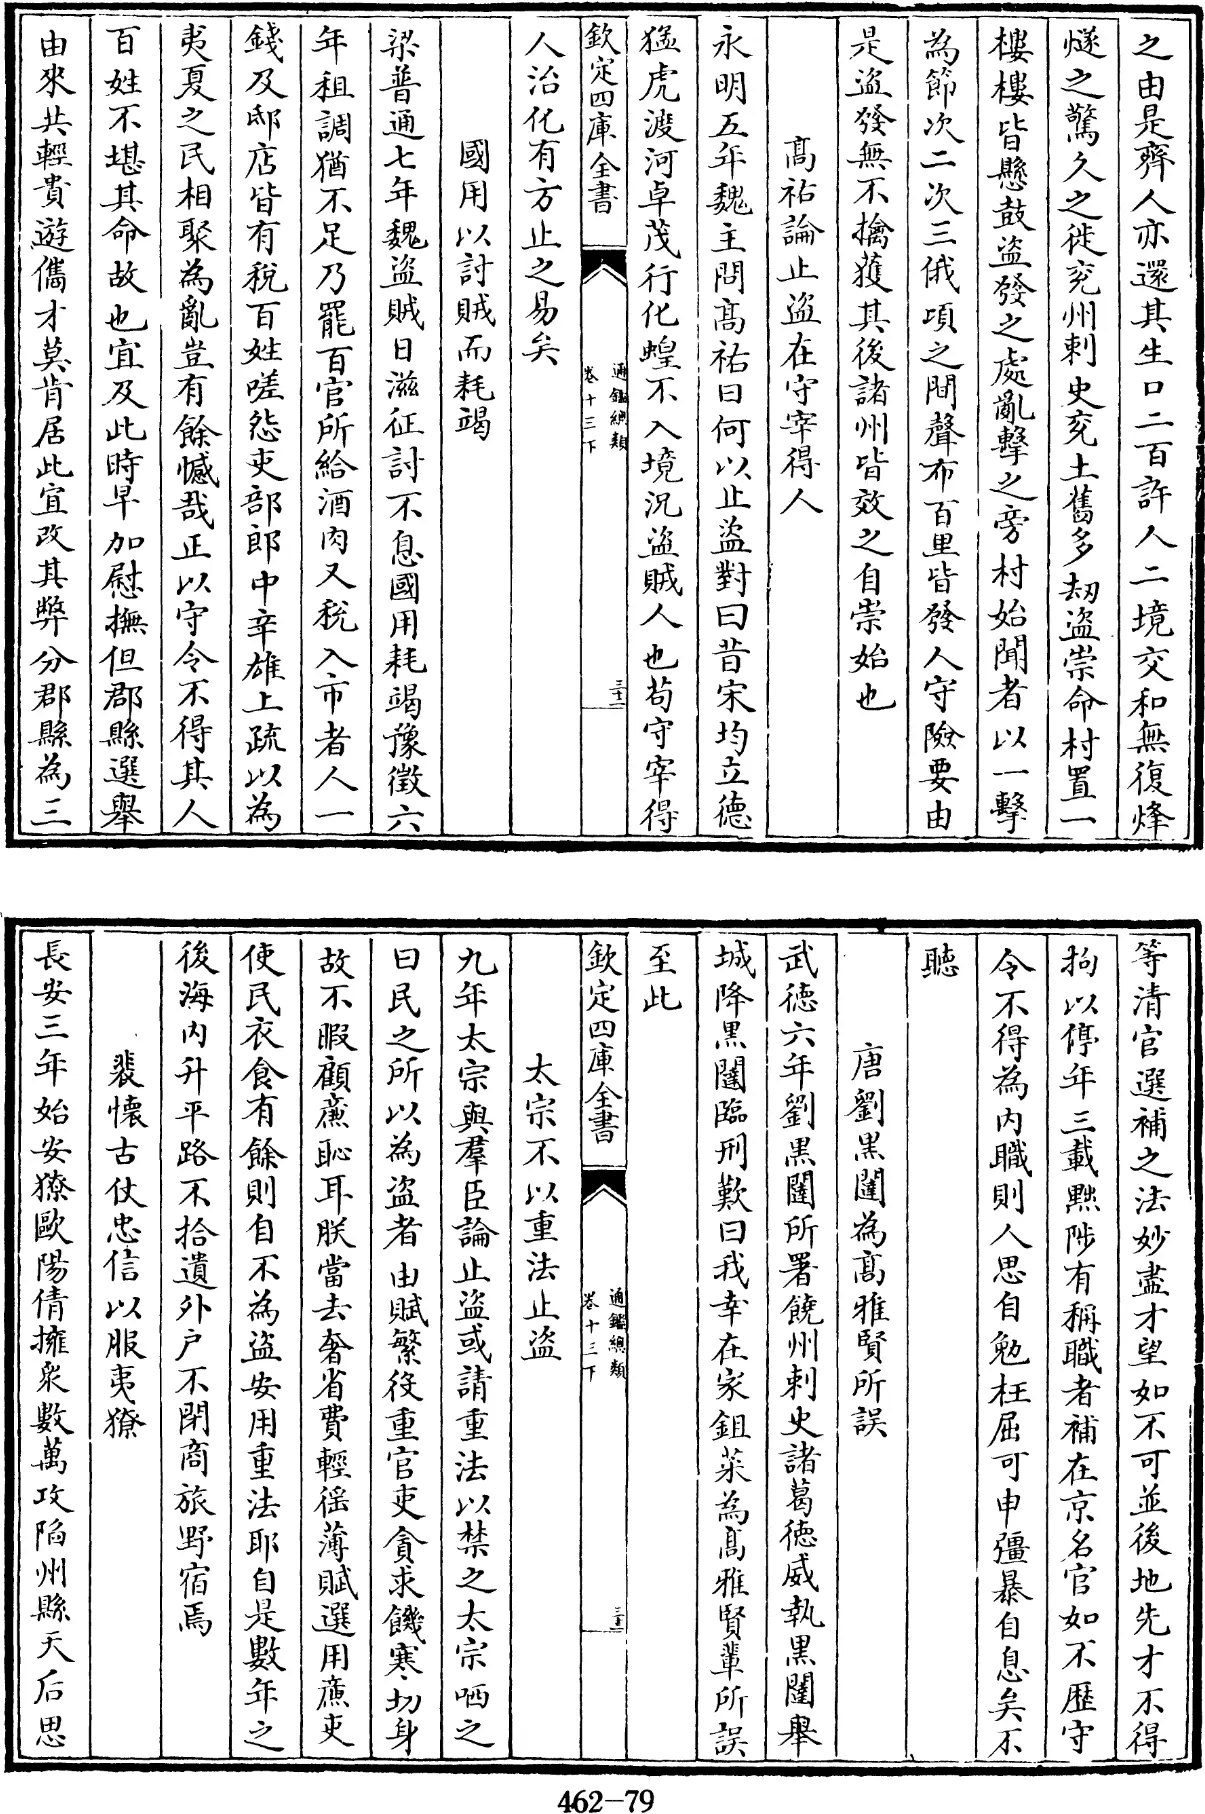 之由是齊人亦還其生口二百許人二境交和無復烽
燧之驚久之徙兖州刺史兖土舊多刼盜崇命村置一
樓樓皆懸鼓盜發之處亂擊之旁村始聞者以一擊
為節次二次三俄頃之間聲布百里皆發人守險要由
是盜發無不擒獲其後諸州皆效之自崇始也
高祐論止盜在守宰得人
永明五年魏主問高祐曰何以止盜對曰昔宋均立德
猛虎渡河卓茂行化蝗不入境況盜賊人也苟守宰得
欽定四庫全書
通鑑總類
卷十三下
三十二
人治化有方止之易矣
國用以討賊而耗竭
梁普通七年魏盜賊日滋征討不息國用耗竭豫徵六
年租調猶不足乃罷百官所給酒肉又稅入市者人一
錢及邸店皆有稅百姓嗟怨吏部郎中辛雄上疏以為
夷夏之民相聚為亂豈有餘憾哉正以守令不得其人
百姓不堪其命故也宜及此時早加慰撫但郡縣選舉
由來共輕貴遊儁才莫肯居此宜改其弊分郡縣為三
等清官選補之法妙盡才望如不可並後地先才不得
拘以停年三載黜陟有稱職者補在京名官如不歷守
令不得為內職則人思自勉枉屈可申彊暴自息矣不
聽
唐劉黑闥為高雅賢所誤
武德六年劉黑闥所署饒州刺史諸葛德威執黑闥舉
城降黑闥臨刑歎曰我幸在家鉏菜為高雅賢輩所誤
至此
欽定四庫全書
通鑑總類
卷十三下
三十三
太宗不以重法止盜
九年太宗與羣臣論止盜或請重法以禁之太宗哂之
曰民之所以為盜者由賦繁役重官吏貪求饑寒切身
故不暇顧亷恥耳朕當去奢省費輕徭薄賦選用亷吏
使民衣食有餘則自不為盜安用重法耶自是數年之
後海內升平路不拾遺外戶不閉商旅野宿焉
裴懷古仗忠信以服夷獠
長安三年始安獠歐陽倩擁衆數萬攻陷州縣天后思
462-79